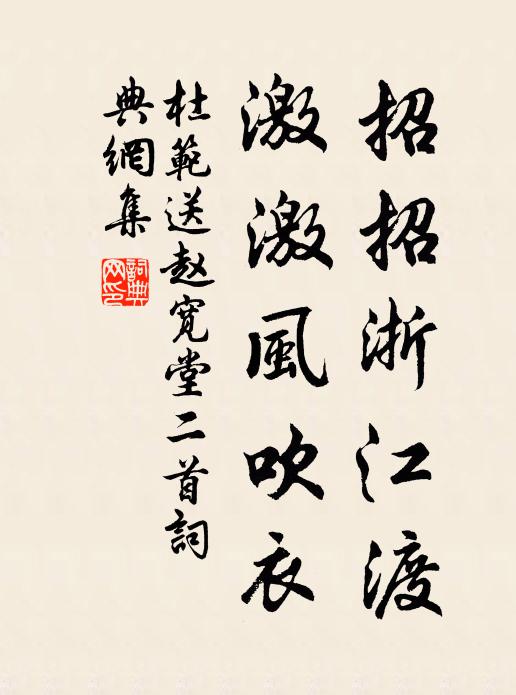 招招浙江渡
激激風吹衣
杜範送赵寬堂二首詞
典網集
詞典网印